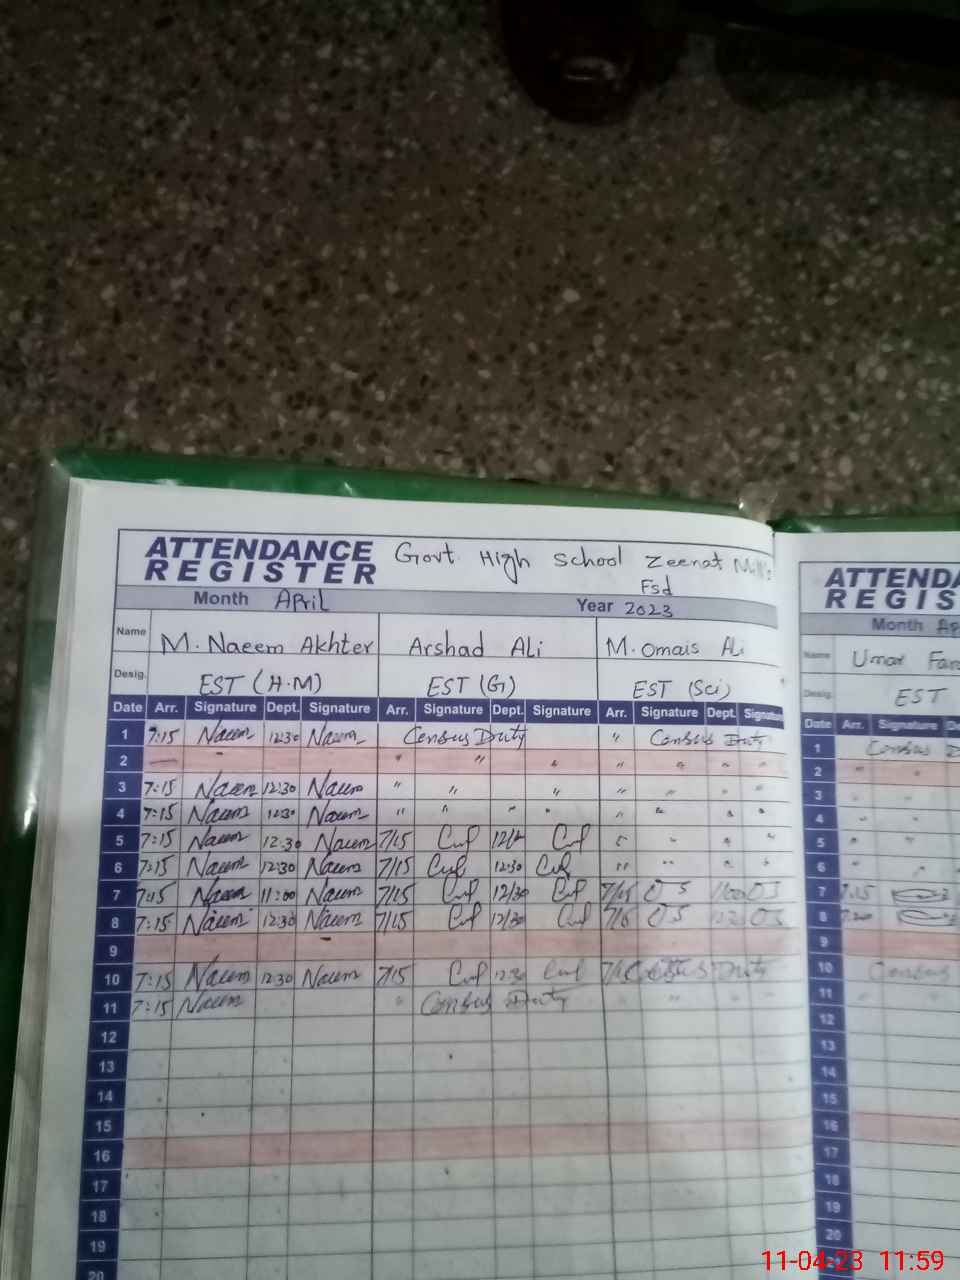 ATTENDANCE REGISTER Govt. High School Zeenat Mills
Fsd
Month April Year 2023
Name M. Naeem Akhter Arshad Ali M. Omais Ali
Desig. EST (H.M) EST (G) EST (Sci)
Date Arr. Signature Dept. Signature Arr. Signature Dept. Signature Arr. Signature Dept. Signature
1 7:15 Naeem 12:30 Naeem Census Duty " Census Duty
2 — " " " " " " "
3 7:15 Naeem 12:30 Naeem " " " " " " "
4 7:15 Naeem 12:30 Naeem " " " " " " " "
5 7:15 Naeem 12:30 Naeem 7/15 " " " "
6 7:15 Naeem 12:30 Naeem 7/15 12:30 " " " "
7 7:15 Naeem 11:00 Naeem 7/15 12/30 OS OS
8 7:15 Naeem 12:30 Naeem 7/15 12/30 OS OS
9
10 7:15 Naeem 12:30 Naeem 7/15 12:30 Census Duty
11 7:15 Naeem " Census Duty " " " "
12
13
14
15
16
17
18
19
20
ATTENDA
REGIS
Month Ap
Name Umar Far
Desig. EST
Date Arr. Signature
1 Census D
2 " "
3 " "
4 " "
5 " "
6 " "
7 7:15
8
9
10 Census
11 " "
12
13
14
15
16
17
18
19
20
21
11-04-23 11:59